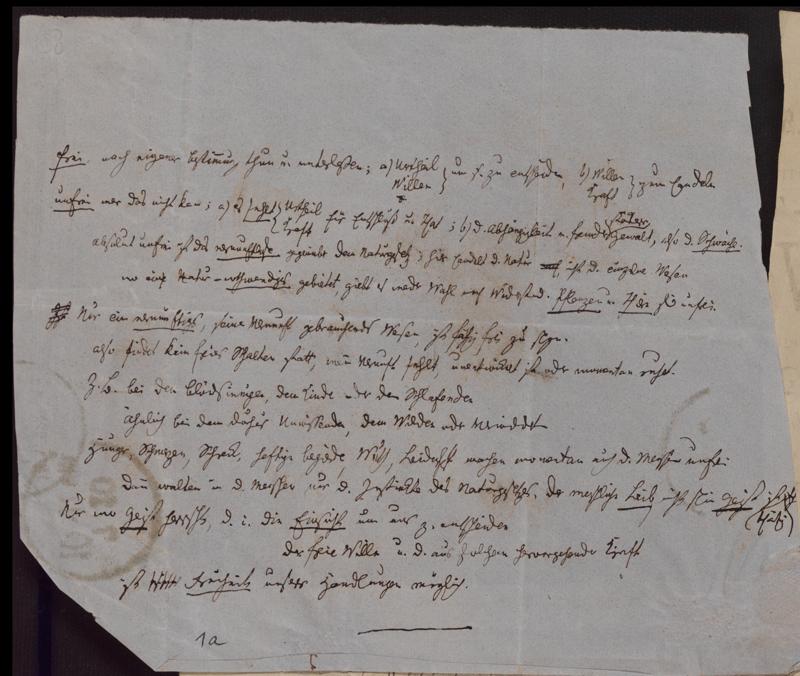 frei. nach eigener Bestimmg. thun u. unterlassen; a) Urtheil Willen } um s. zu entscheiden, b) Willen Kraft } zum Handeln
unfrei wer das nicht kan; a) es fehlt Urtheil Kraft für Entschluß u. That; b) d. Abhängigkeit v. fremder Gewalt, also d. Schwäche.
absolut unfrei ist das vernunftlose gegenüber dem Naturgesetz; hier handelt d. Natur nicht d. einzelne Wesen
wo eine Natur-nothwendigk. gebietet, giebt es weder Wahl noch Widerstand. Pflanzen u. Thiere sind unfrei.
Nur ein vernünftiges, seine Vernunft gebrauchendes Wesen, ist fähig frei zu seyn.
also findet kein freies Schalten statt, wenn Vernunft fehlt, unentwickelt ist oder momentan ruht.
z. B. bei den Blödsinnigen, dem Kinde oder dem Schlafenden
ähnlich bei dem Unwissenden, dem Wilden oder
Hunger, Schmerzen, Schreck, heftige Begierde, Wuth, Leidenschft machen momentan auch d. Menschen unfrei
dann walten in d. Menschen nur d. Instinkte des Naturgesetzes. der menschliche Leib nicht sein Geist ist
(thätig)
Nur wo Geist herrscht, d. i. die Einsicht um uns z. entscheiden
der freie Wille u. d. aus solchem hervorgehende Kraft
ist Freiheit unserer Handlungen möglich.
1a